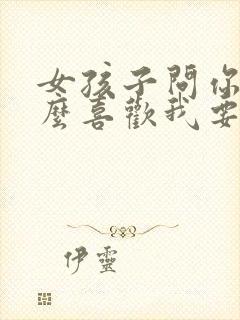 女孩子問你
麼喜歡我要
伊靈